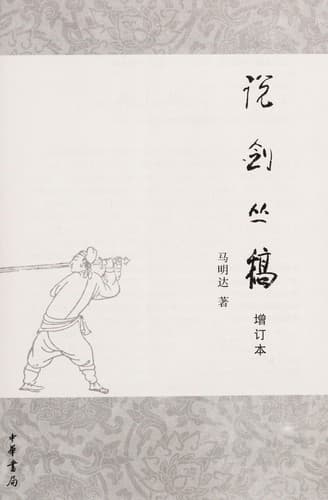 说剑丛稿
增订本
马明达 著
中华书局